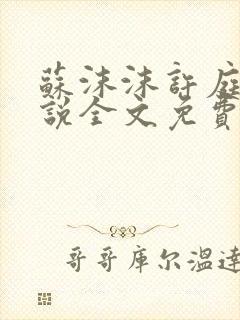 蘇沫沫許庭
說全文免費
哥哥庫尔温達